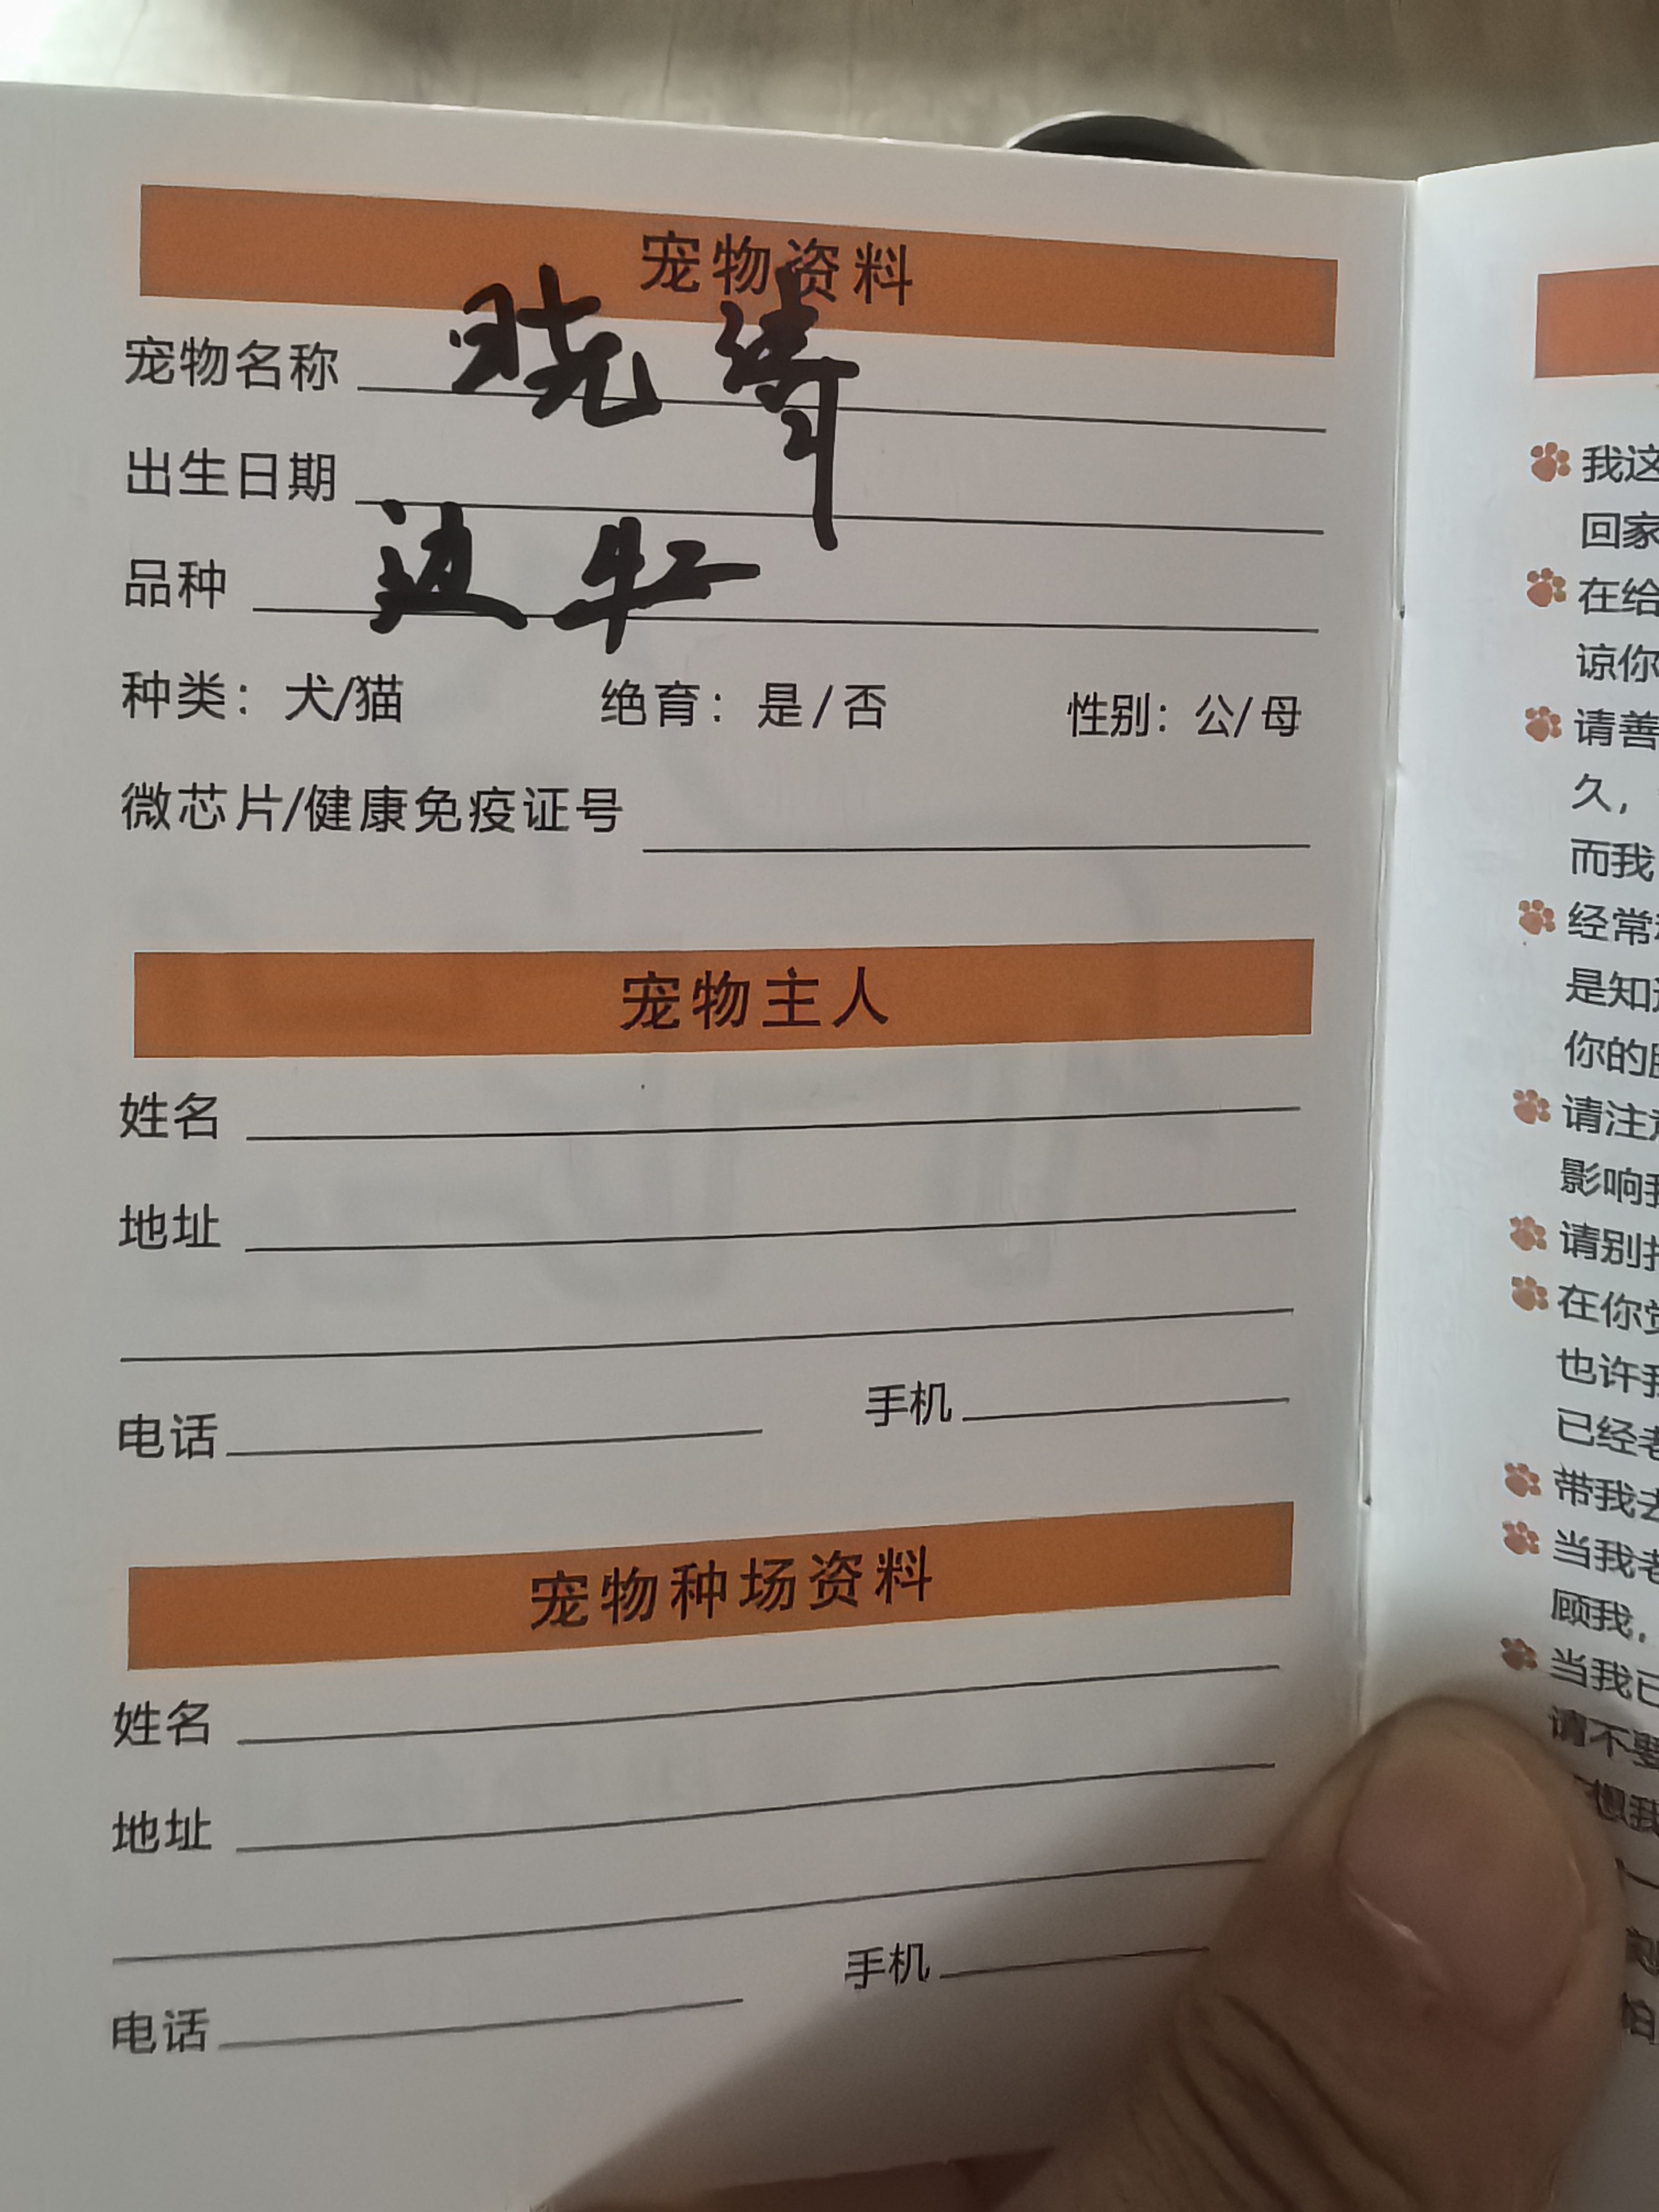 宠物资料
宠物名称 晓
出生日期
品种 边牧
种类：犬/猫 绝育：是/否 性别：公/母
微芯片/健康免疫证号
宠物主人
姓名
地址
电话 手机
宠物种场资料
姓名
地址
电话 手机
我这
回家
在给
谅你
请善
久，
而我
经常
是知
你的
请注
影响我
请别
在你
也许我
已经老
带我去
当我老
顾我，
当我已
请不要
想我